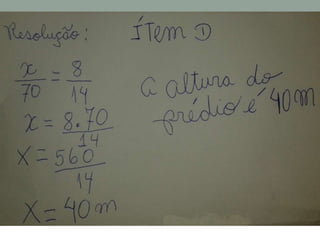 Resolução: ÍTem D
x/70 = 8/14
x = 8.70/14
X = 560/14
X = 40 m
a altura do
prédio é 40 m